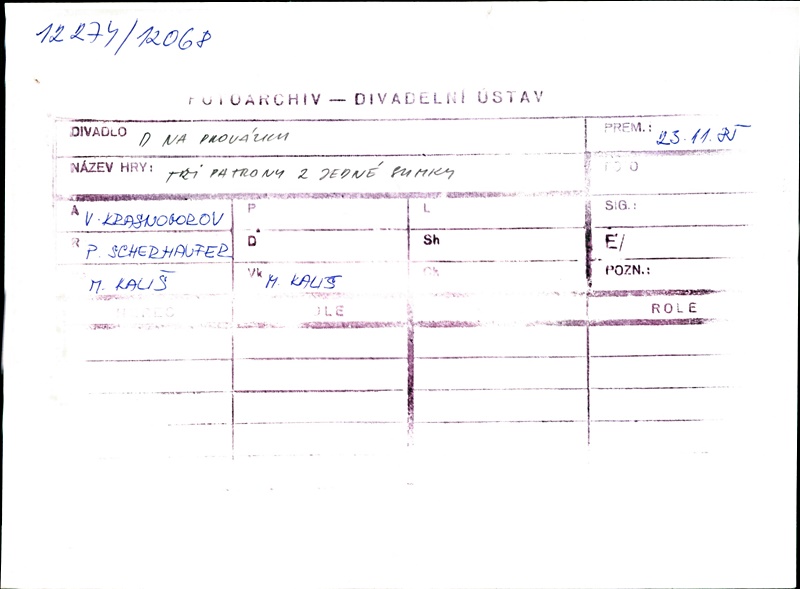 12274/12068
FOTOARCHIV — DIVADELNÍ ÚSTAV
DIVADLO D NA PROVÁZKU PREM.: 23.11.
NÁZEV HRY: TŘI PATRONY Z JEDNÉ SUMKY FOTO
A V. KRASNOGOROV P L SIG.:
R P. SCHERHAUFER D Sh É/
M. KALIŠ Vk M. KALIŠ Ch POZN.:
ROLE